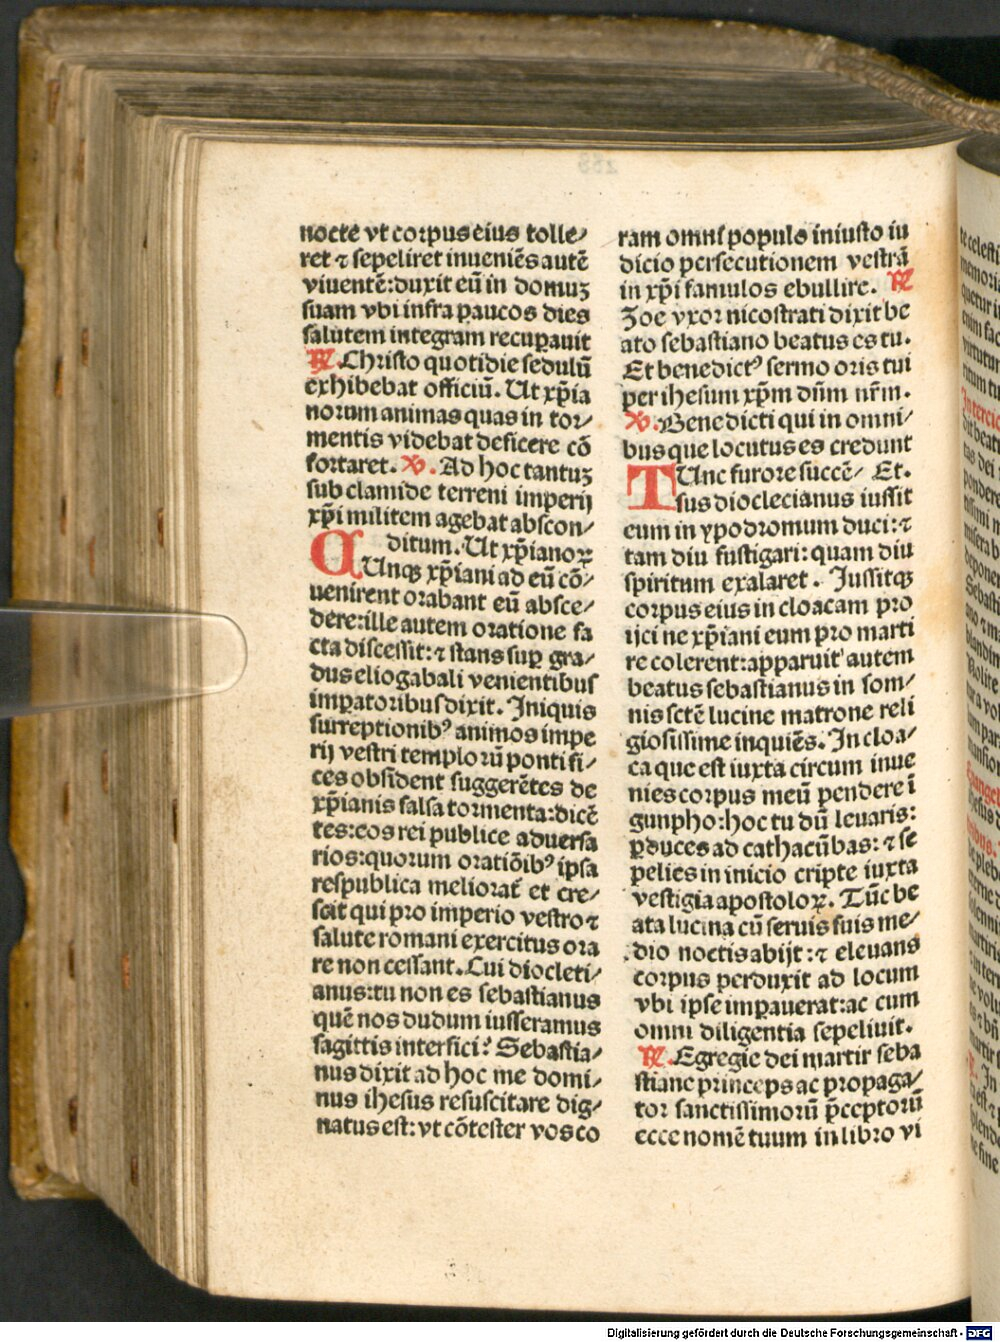 nocte vt corpus eius tolle/
ret ⁊ sepeliret inueniēs autē
viuentē: duxit eū in domuꝫ
suam vbi infra paucos dies
salutem integram recuꝑauit
℟. Christo quotidie sedulū
exhibebat officiū. Ut xp̄ia
norum animas quas in tor/
mentis videbat deficere cō
fortaret. ℣. Ad hoc tantuꝫ
sub clamide terreni imperij
xp̄i militem agebat abscon/
ditum. Ut xp̄ianoꝝ
CUnqꝫ xp̄iani ad eū cō/
uenirent orabant eū absce/
dere: ille autem oratione fa
cta discessit: ⁊ stans suꝑ gra/
dus eliogabali venientibus
imꝑatoribus dixit. Iniquis
surreptionibꝰ animos impe
rij vestri temploꝛū pontifi/
ces obsident suggerētes de
xp̄ianis falsa tormenta: dicē
tes: eos rei publice aduersa
rios: quorum oratiōibꝰ ipsa
respublica meliorat̄ et cre/
scit qui pro imperio vestro ⁊
salute romani exercitus ora
re non cessant. Cui diocleti/
anus: tu non es sebastianus
quē nos dudum iusseramus
sagittis interfici? Sebastia/
nus dixit ad hoc me domi/
nus ihesus resuscitare dig/
natus est: vt cōtester vos co
ram omni populo iniusto iu
dicio persecutionem vestrā
in xp̄i famulos ebullire. ℟
Zoe vxor nicostrati dixit be
ato sebastiano beatus es tu.
Et benedictꝰ sermo oris tui
per ihesum xp̄m dn̄m nr̄m.
℣. Benedicti qui in omni/
bus que locutus es credunt
TUnc furore succē/ Et.
sus dioclecianus iussit
eum in ypodromum duci: ⁊
tam diu fustigari: quam diu
spiritum exalaret. Jussitqꝫ
corpus eius in cloacam pro
ijci ne xp̄iani eum pro marti
re colerent: apparuit autem
beatus sebastianus in som/
nis sctē lucine matrone reli
giosissime inquiēs. In cloa/
ca que est iuxta circum inue
nies corpus meū pendere ī
gunpho: hoc tu dū leuaris:
ꝑduces ad cathacūbas: ⁊ se
pelies in inicio cripte iuxta
vestigia apostoloꝝ. Tūc be
ata lucina cū seruis suis me/
dio noctis abijt: ⁊ eleuans
corpus perduxit ad locum
vbi ipse imꝑauerat: ac cum
omni diligentia sepeliuit.
℟. Egregie dei martir seba
stiane princeps ac propaga/
tor sanctissimorū p̄ceptorū
ecce nomē tuum in libro vi
Digitalisierung gefördert durch die Deutsche Forschungsgemeinschaft - DFG